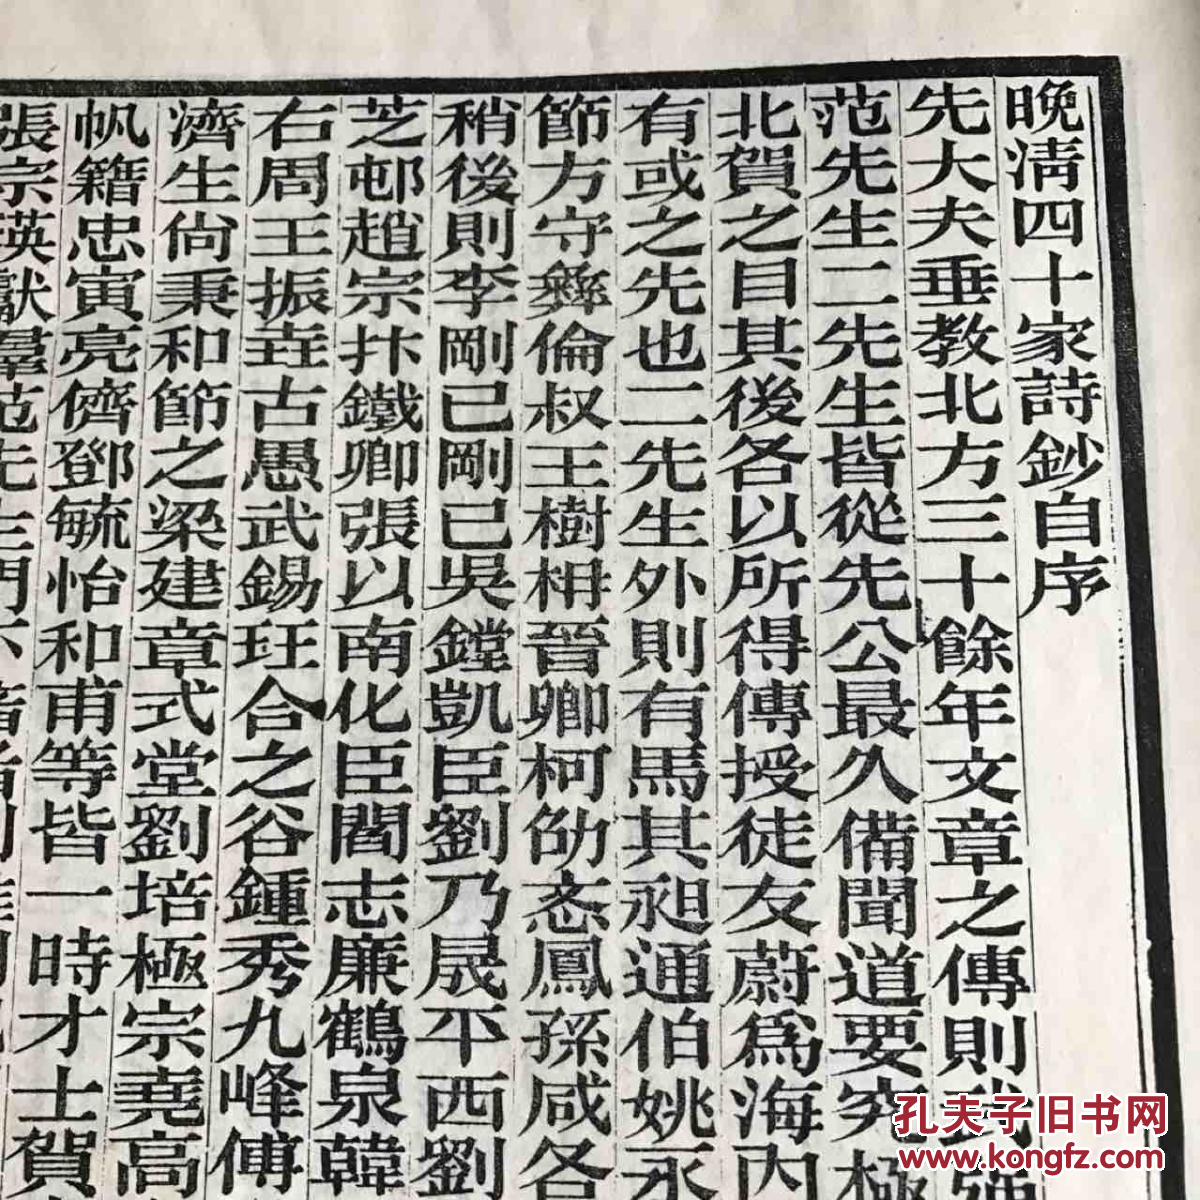 晚清四十家詩鈔自序
先大夫垂教北方三十餘年文章之傳則武強
范先生二先生皆從先公最久備聞道要究極
北賀之目其後各以所得傳授徒友蔚為海內
有或之先也二先生外則有馬其昶通伯姚永
節方守彝倫叔王樹枏晉卿柯劭忞鳳孫咸各
稍後則李剛己剛己吳鏜凱臣劉乃晟平西劉
芝邨趙宗抃鐵卿張以南化臣閻志廉鶴泉韓
右周王振垚古愚武錫玨合之谷鍾秀九峰傅
濟生尙秉和節之梁建章式堂劉培極宗堯高
帆籍忠寅亮儕鄧毓怡和甫等皆一時才士賀
張宗瑛獻羣范先生門下
孔夫子旧书网
www.kongfz.com